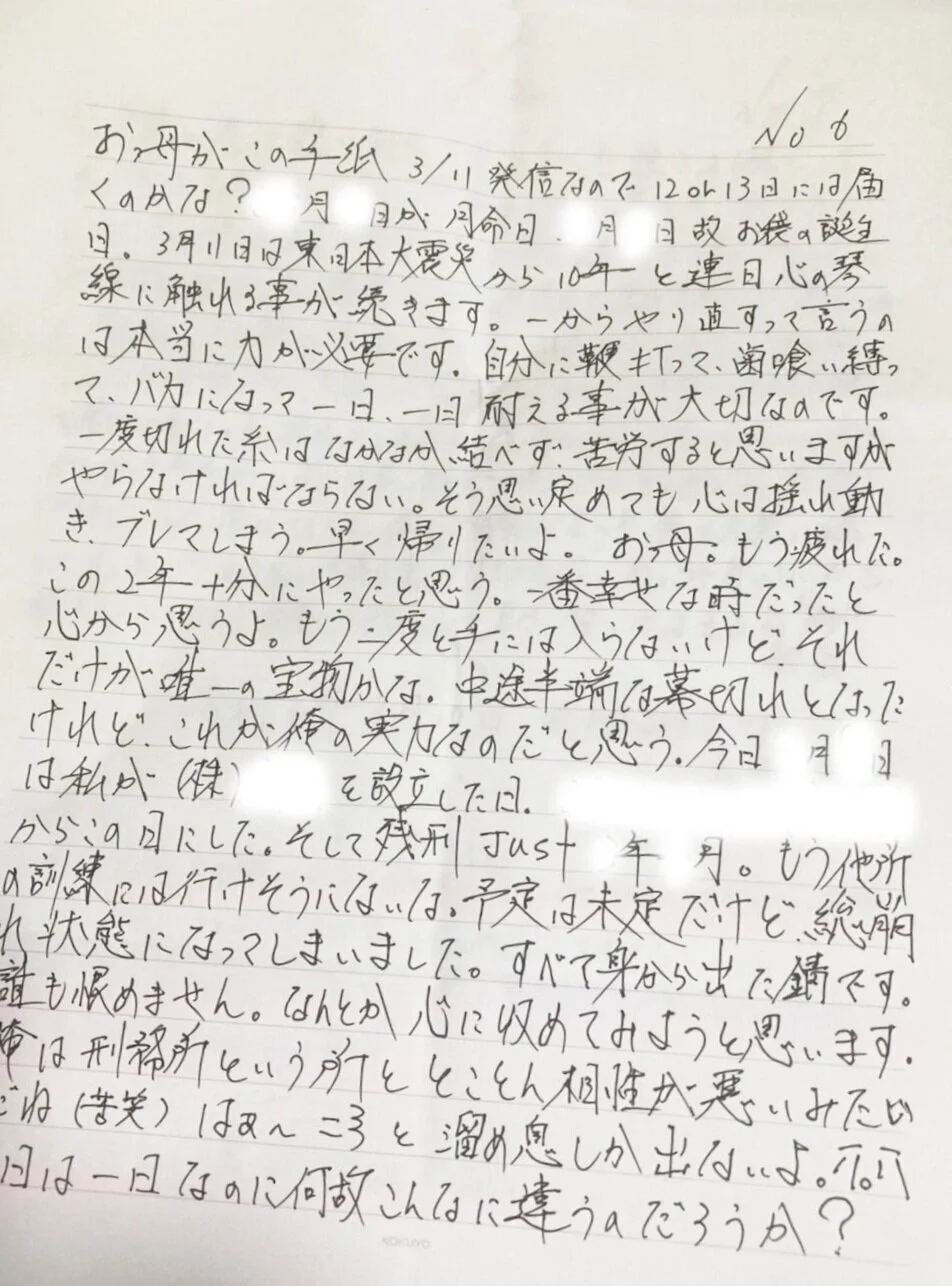 No 6
お母がこの手紙 3/11 発信なので 12or13日には届
くのかな? 月 日が月命日、 月 日故 お袋の誕生
日。3月11日は東日本大震災から10年と連日心の琴
線に触れる事が続きます。一からやり直すって言うの
は本当に力が必要です。自分に鞭打って、歯喰い縛っ
て、バカになって一日、一日耐える事が大切なのです。
一度切れた糸はなかなか結べず、苦労すると思いますが
やらなければならない。そう思い定めても心は揺れ動
き、ブレてしまう。早く帰りたいよ。お母。もう疲れた。
この2年十分にやったと思う。一番幸せな時だったと
心から思うよ。もう二度と手には入らないけど、それ
だけが唯一の宝物かな。中途半端な幕切れとなった
けれど、これが俺の実力なのだと思う。今日 月 日
は私が(株) を設立した日。
からこの日にした。そして残刑 Just 年 月。もう他所
の訓練には行けそうにないな。予定は未定だけど、総崩
れ状態になってしまいました。すべて身から出た錆です。
誰も恨めません。なんとか心に収めてみようと思います。
俺は刑務所という所ととことん相性が悪いみたい
だね(苦笑) はぁ〜 と溜め息しか出ないよ。
日は一日なのに何故こんなに違うのだろうか?
KOKUYO